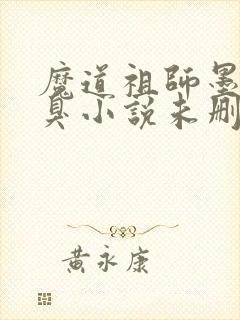 魔道祖師墨
臭小說未刪
黃永康